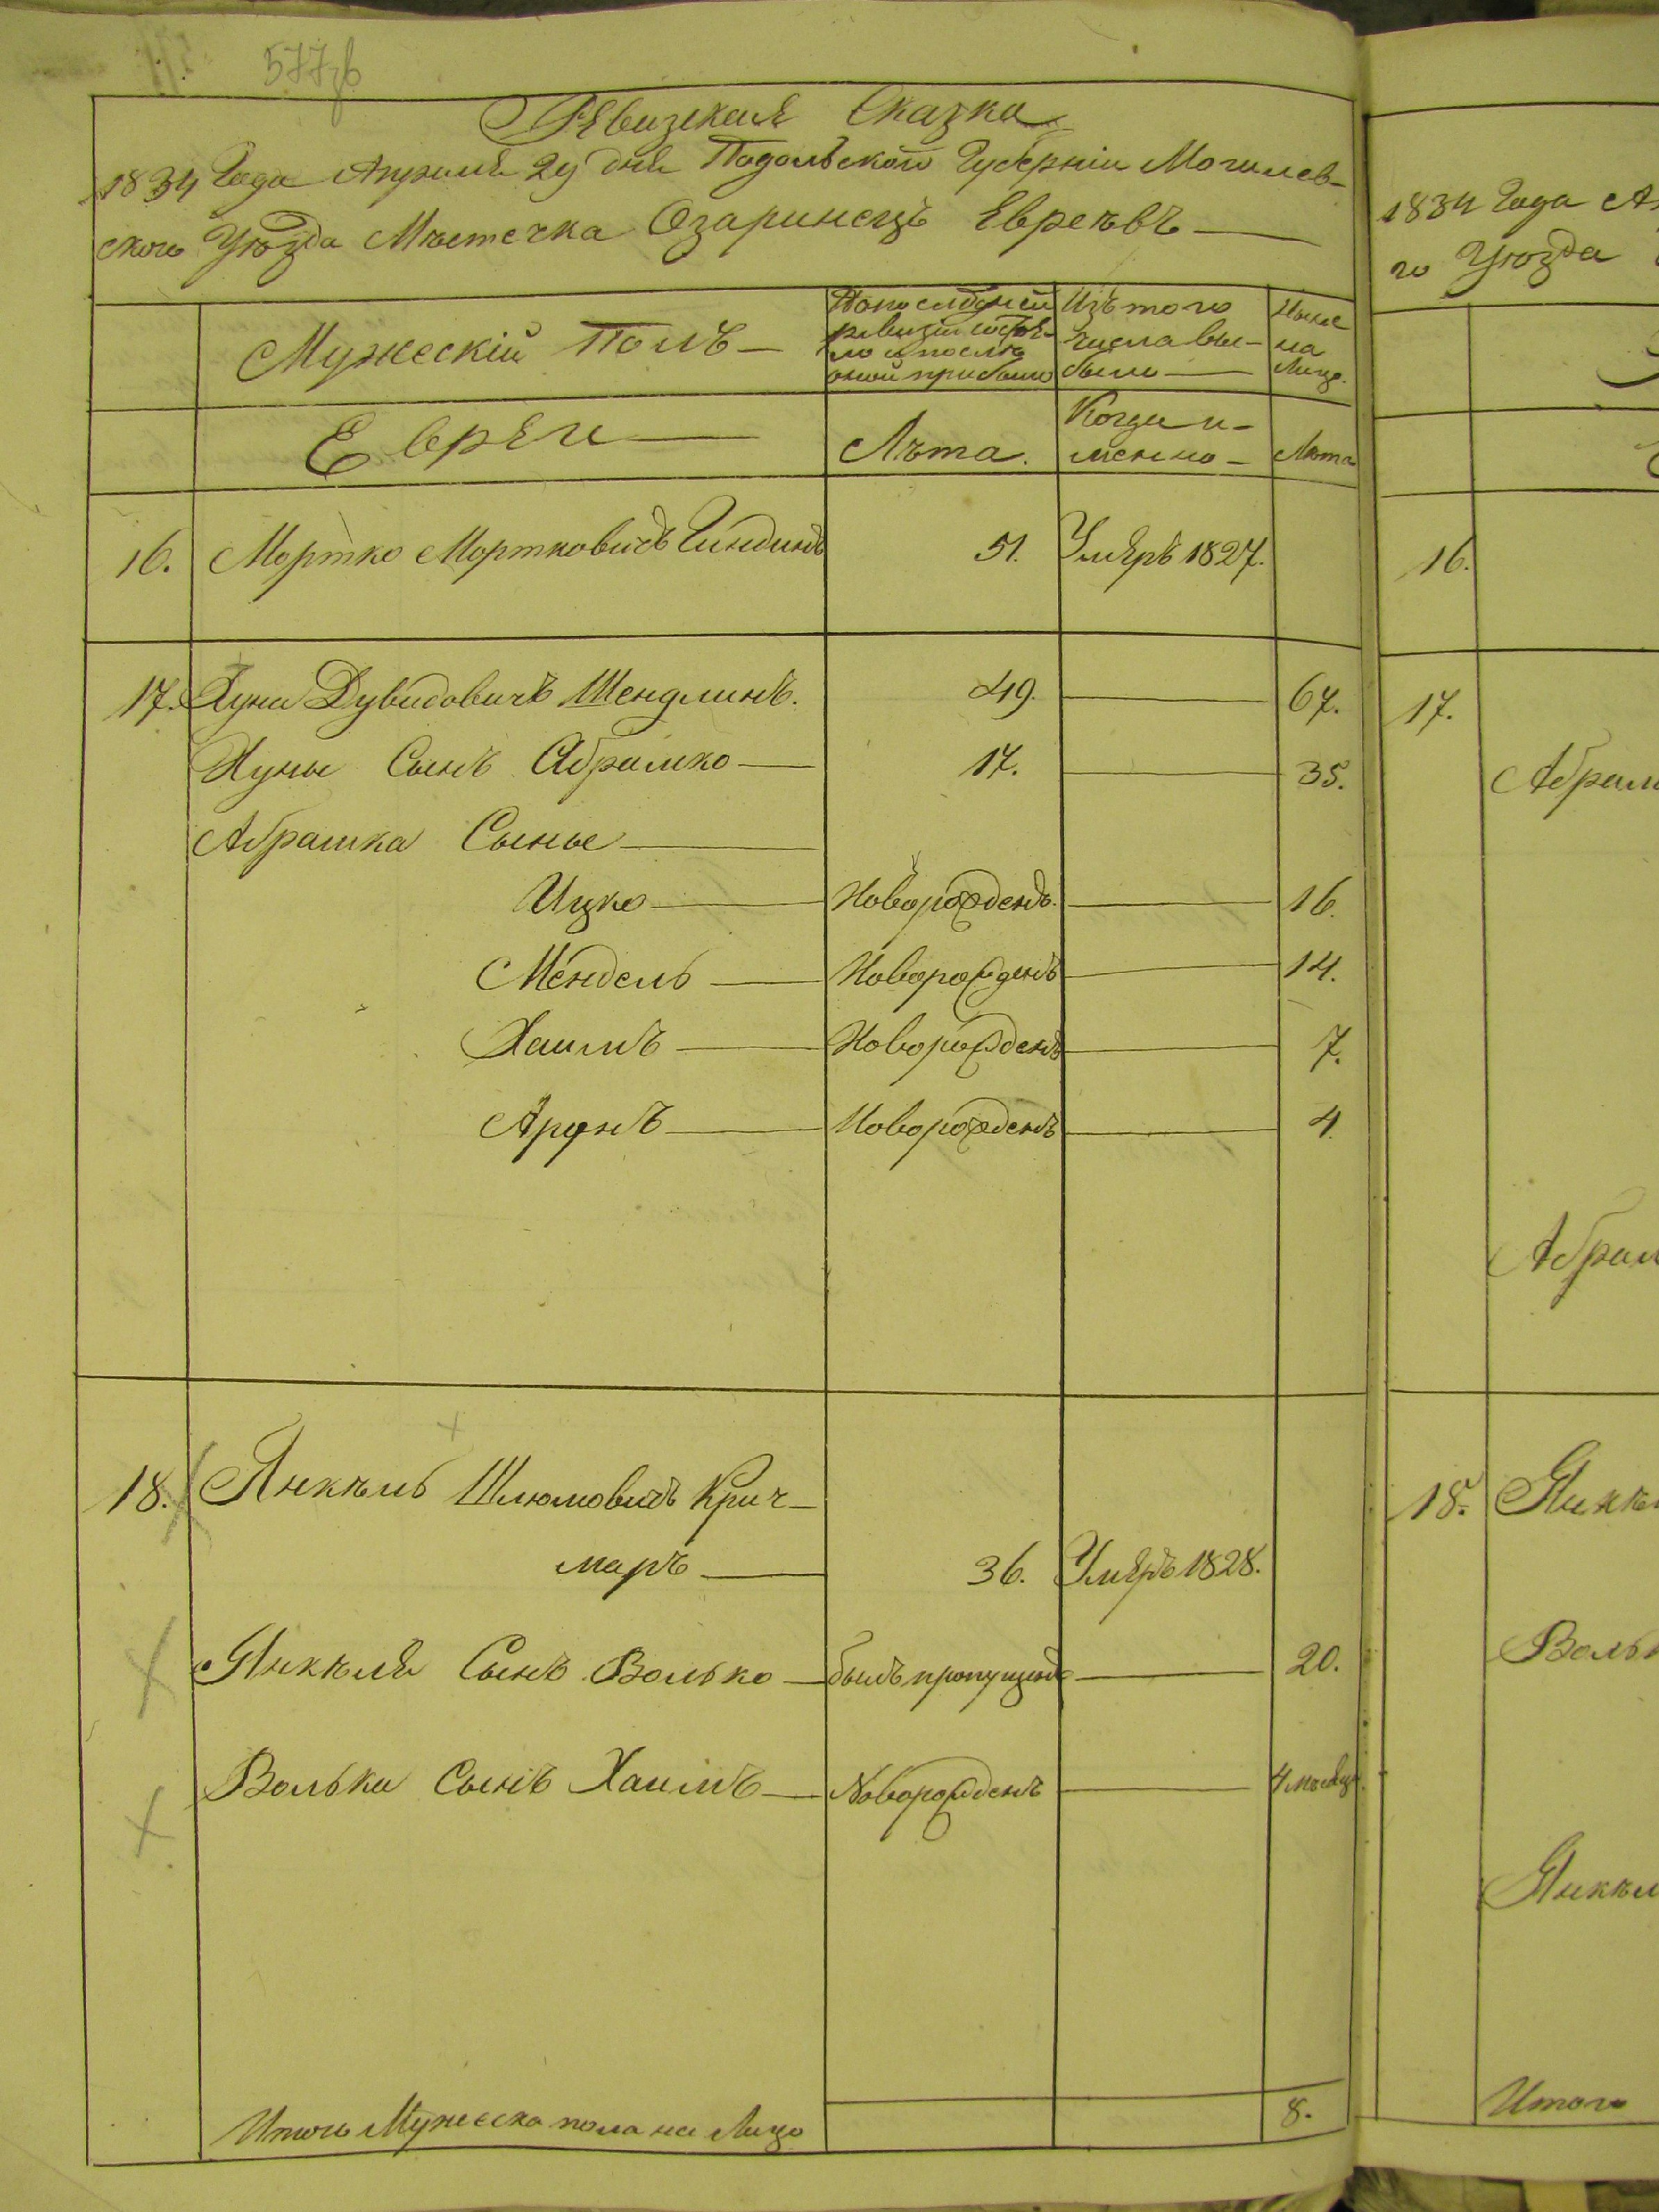 577зв
Ревизская Сказка
1834 Года Апреля 29 дня Подольской Губерніи Могилев-
ского Уѣзда Мѣстечка Озаринецъ Евреѣвъ
Мужескій Полъ
По последней
ревизіи состоя-
ло и послѣ
оной прибыло
Изъ того
числа вы-
было
Ныне
на
Лицо.
Евреи
Лѣта.
Когда и-
менно
Лѣта
16. Мортко Мортковичъ 51. Умеръ 1827.
17. Хуна Дувидовичъ Шендлинъ. 49. 67.
Хуны Сынъ Абрамко 17. 35.
Абрамка Сынье
Ицко Новорожденъ. 16.
Мендель Новорожденъ 14.
Хаимъ Новорожденъ 7.
Аронъ Новорожденъ 4.
18. Янкѣль Шлюмовичъ Крич-
маръ 36. Умеръ 1828.
Янкѣля Сынъ Волько былъ пропущенъ 20.
Волька Сынъ Хаимъ Новорожденъ 4 месяца.
Итого Мужеска пола на Лицо 8.
1834 Года
го Уѣзда
16.
17.
18.
Итого